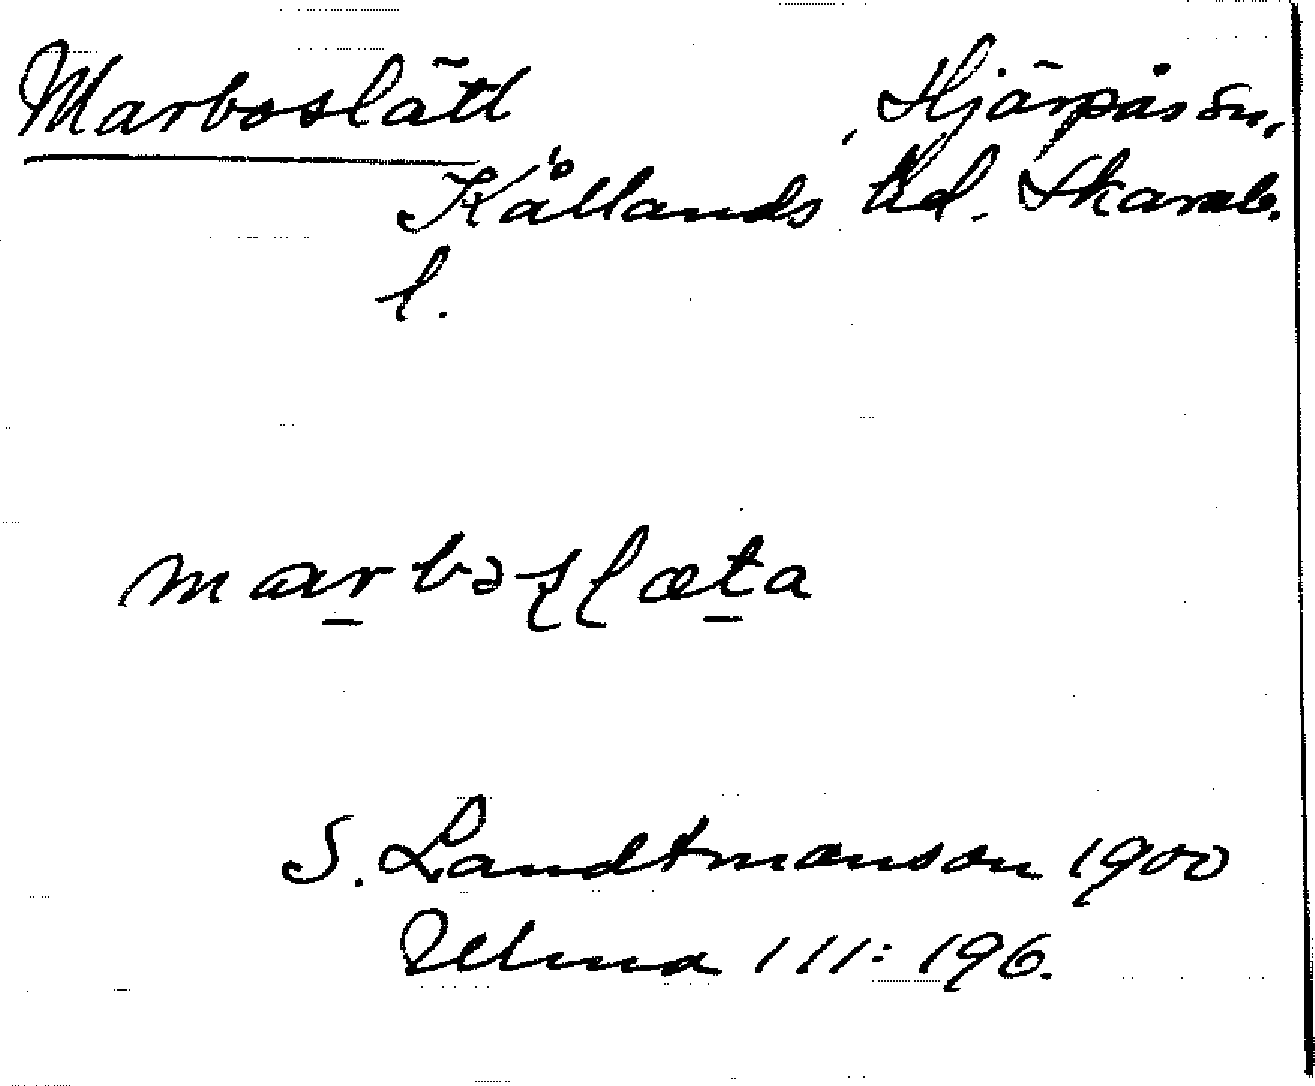 Marboslätt , Hjärpås sn,
Kållands hd. Skarab.
l.
marbəsʃæta
S. Landtmanson 1900
Ulma 111:196.